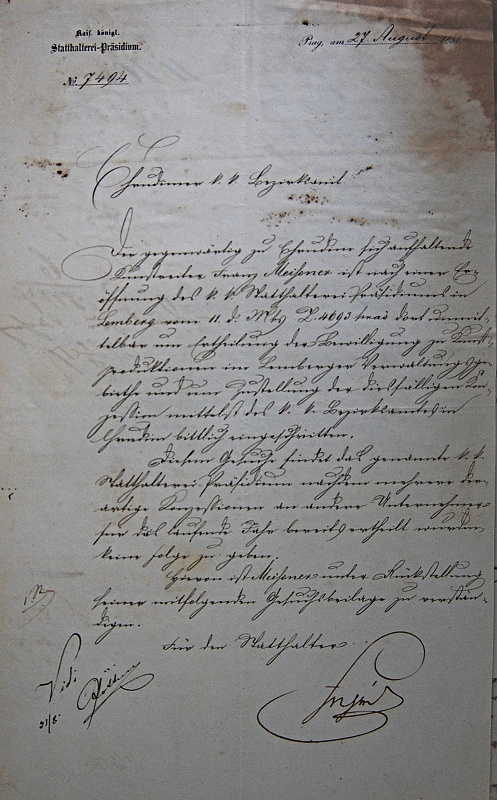 Kais. königl.
Statthalterei-Präsidium.
№ 7494
Prag, am 27 August
Chrudimer k. k. Bezirksamt
Der gegenwärtig zu Chrudim sich aufhaltende
Kunstreiter Franz Meißner ist nach einer Er-
öffnung des k. k. Statthalterei Präsidiums in
Lemberg vom 11. d. Mts Z. 4693 dort unmit-
telbar um Ertheilung der Bewilligung zu Kunst-
produktionen im Lemberger Verwaltungsge-
biethe und um Zustellung der diesfälligen Kon-
zession mittelst des k. k. Bezirksamtes in
Chrudim bittlich eingeschritten.
Diesem Gesuche findet das genannte k. k.
Statthalterei Präsidium nachdem mehrere der-
artige Konzessionen an andere Unternehmer
für das laufende Jahr bereits ertheilt wurden
keine Folge zu geben.
Hievon ist Meißner unter Rückstellung
seiner mitfolgenden Gesuchsbeilage zu verstän-
digen.
Für den Statthalter
Vidi
31/8